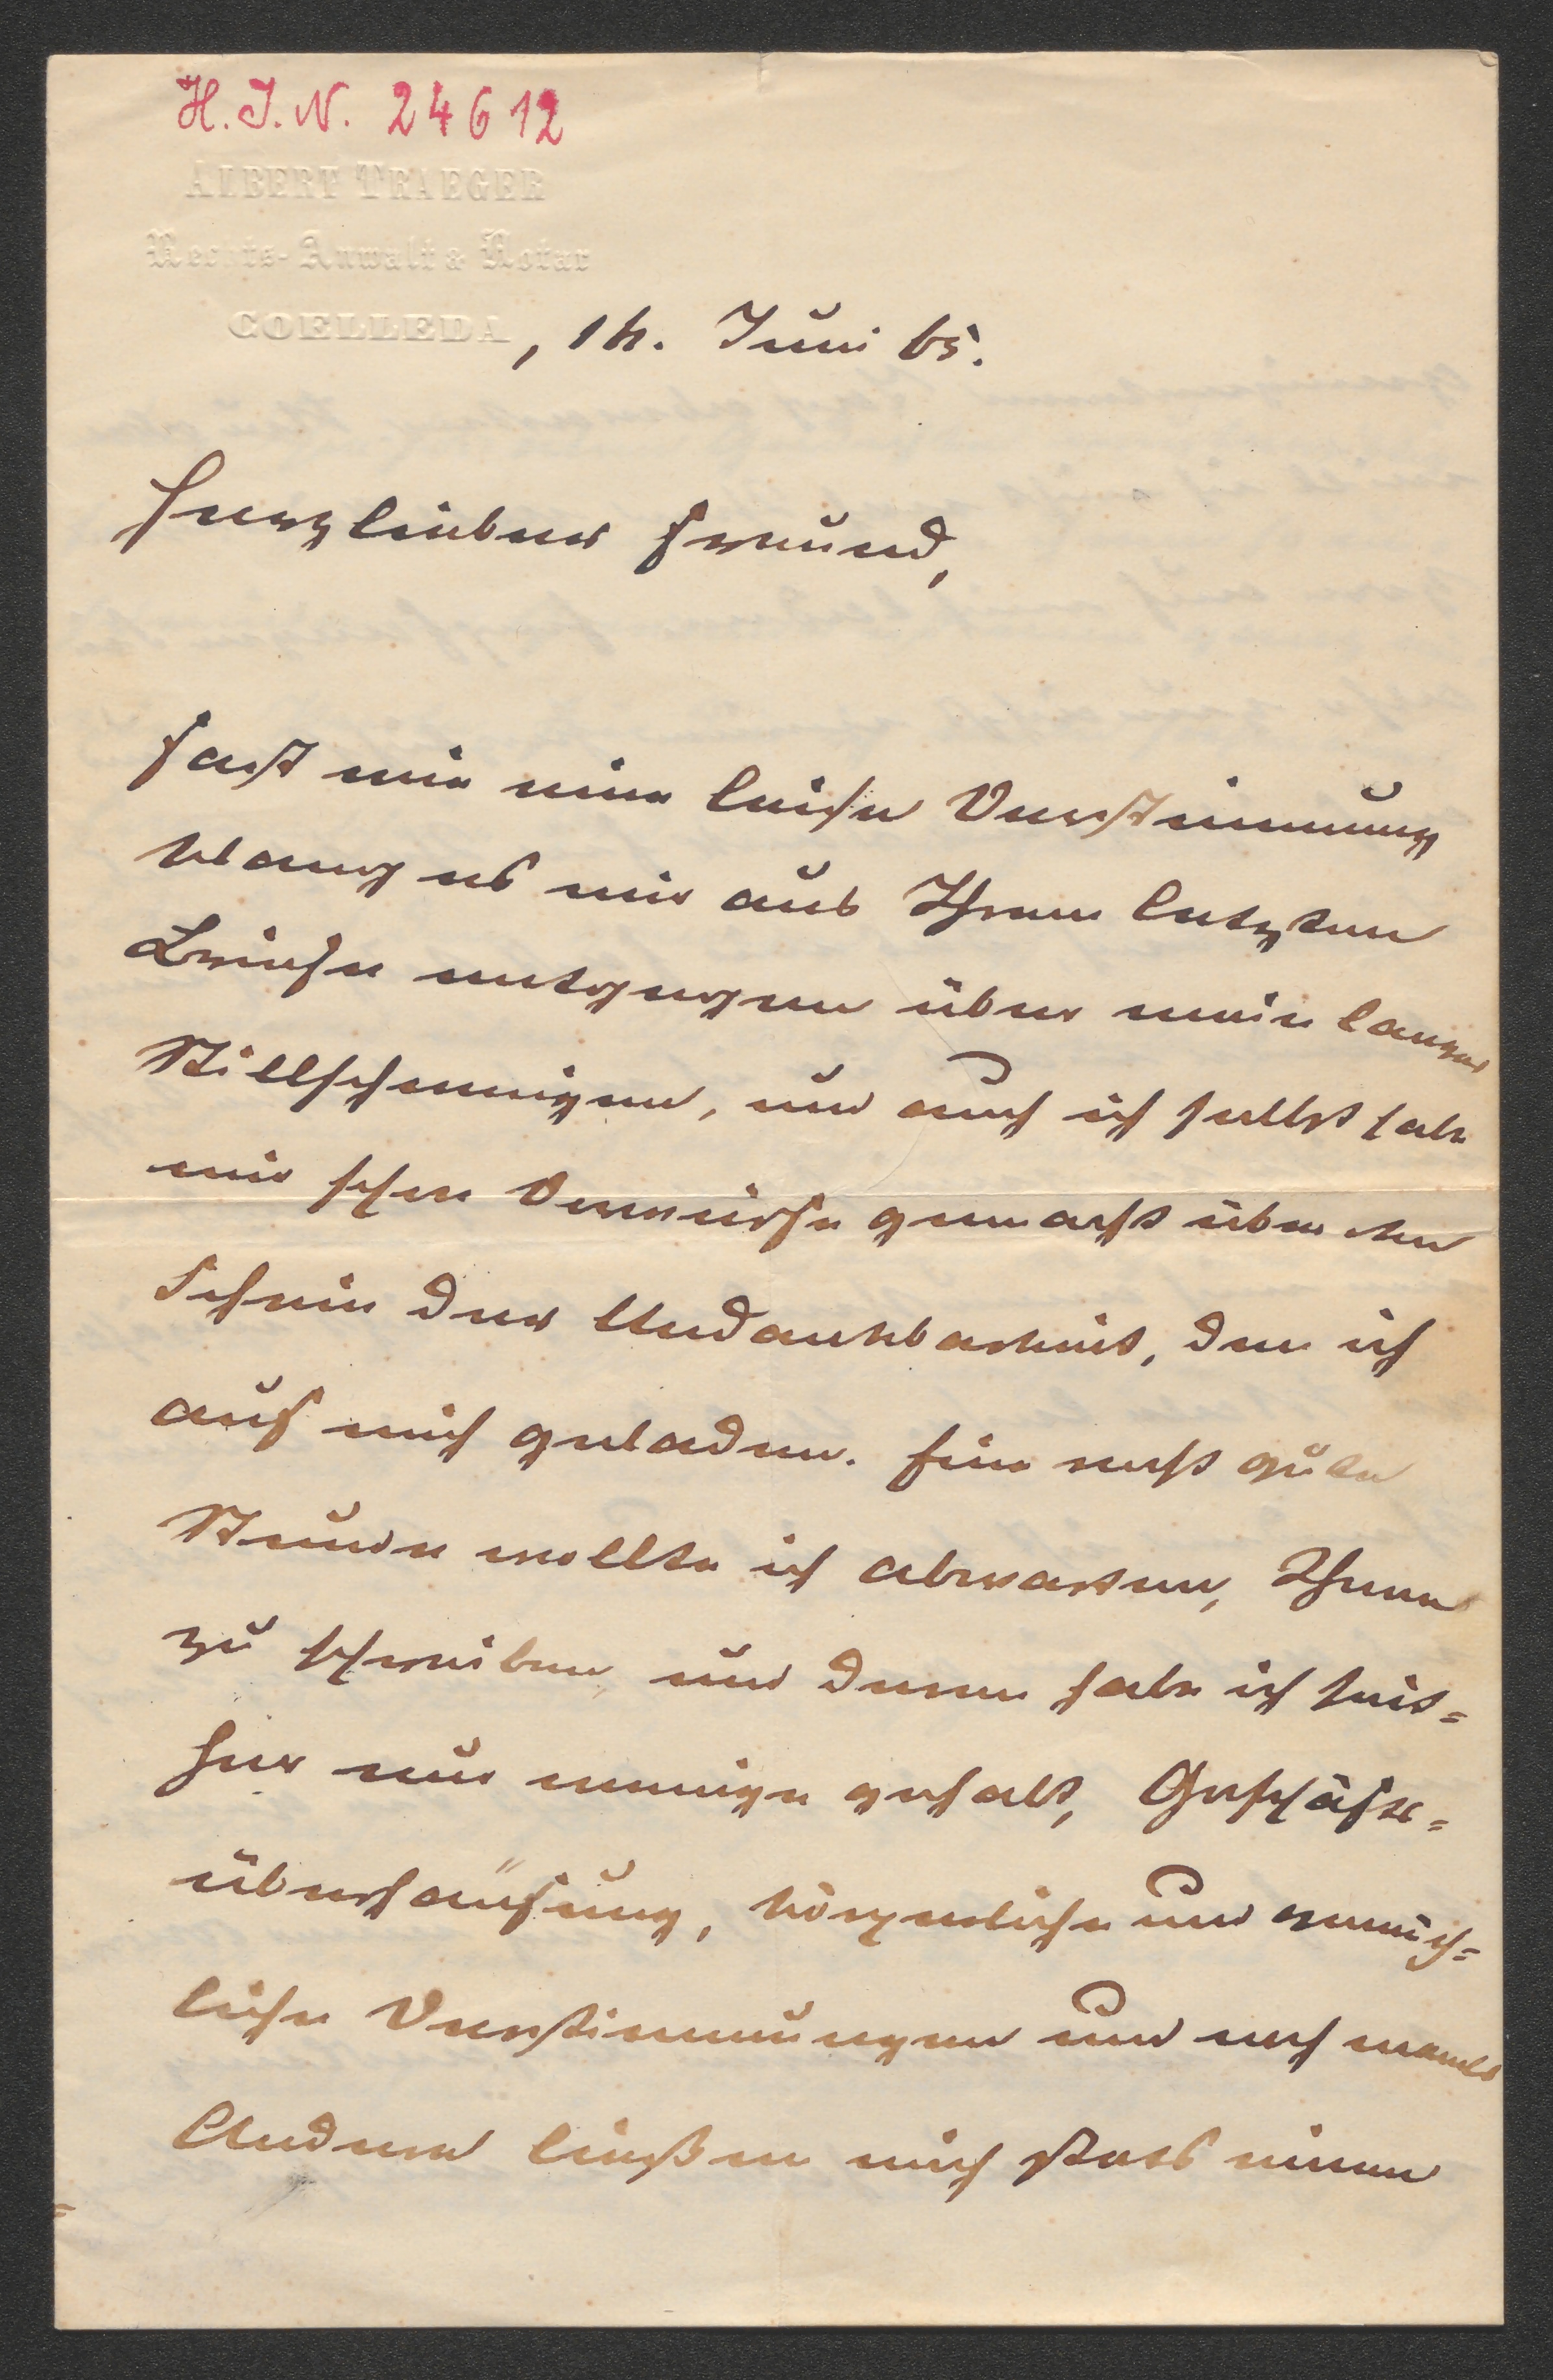 H. I. N. 24612
ALBERT TRAEGER
Rechts-Anwalt & Notar
COELLEDA
, 14. Juni 65.
Herzlieber Freund,
Fast wie eine leise Verstimmung
klang es mir aus Ihrem letzten
Briefe entgegen über mein langes
Stillschweigen, und auch ich selbst habe
mir schon Vorwürfe gemacht über den
Schein der Undankbarkeit, den ich
auf mich geladen. Eine recht gute
Stunde wollte ich abwarten, Ihnen
zu schreiben, und deren habe ich seit=
her nur wenige gehabt, Geschäfts=
überhäufung, körperliche und gemüth=
liche Verstimmungen und noch manches
Andere ließen mich stets einen